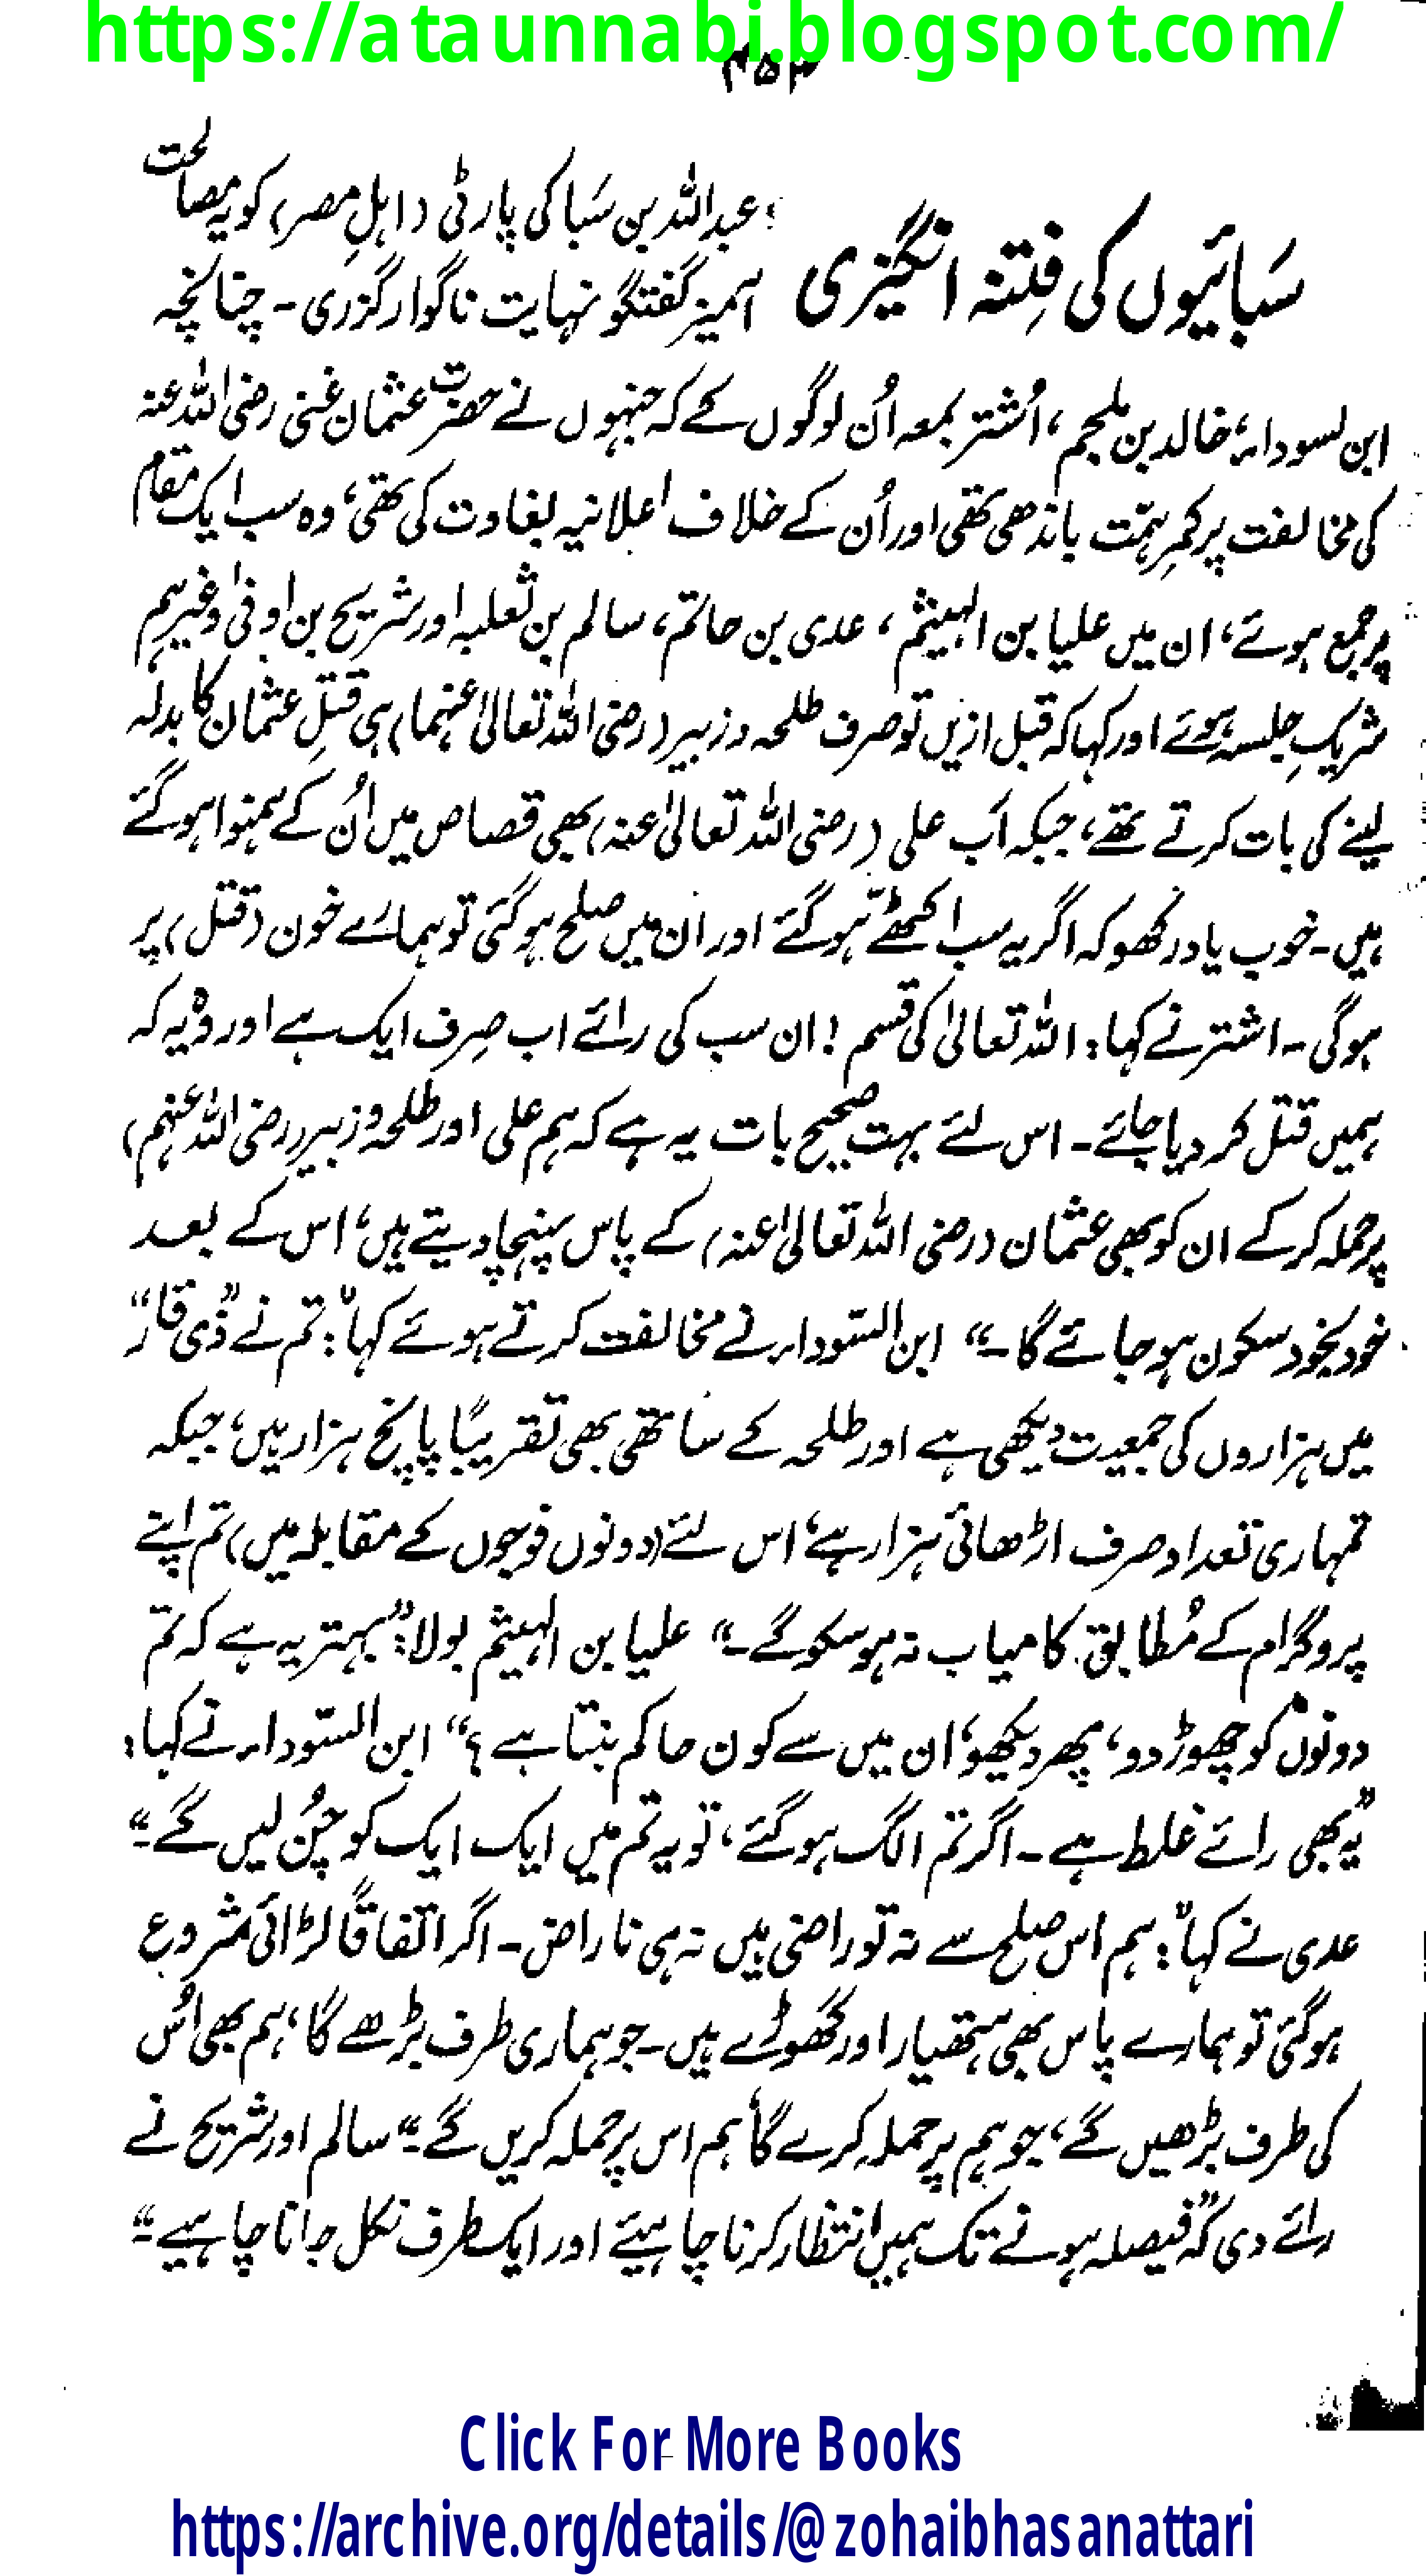 https://ataunnabi.blogspot.com/
۴۵۳
سَبائیوں کی فِتنہ انگیزی
عبداللہ بن سَبا کی پارٹی (اہلِ مصر) کو یہ مصالحت
آمیز گفتگو نہایت ناگوار گزری۔ چنانچہ
ابن لسوداء، خالد بن ملجم، اُشتر بمعہ اُن لوگوں کے کہ جنہوں نے حضرت عثمان غنی رضی اللہ عنہ
کی مخالفت پر کمرِ ہمّت باندھی تھی اور اُن کے خلاف اعلانیہ بغاوت کی تھی، وہ سب ایک مقام
پر جمع ہوئے، ان میں علیا بن الہیثم، عدی بن حاتم، سالم بن ثعلبہ اور شریح بن اوفیٰ وغیرہم
شریکِ جلسہ ہوئے اور کہا کہ قبل ازیں تو صرف طلحہ و زبیر (رضی اللہ تعالیٰ عنہما) ہی قتلِ عثمان کا بدلہ
لینے کی بات کرتے تھے، جبکہ اَب علی (رضی اللہ تعالیٰ عنہ) بھی قصاص میں اُن کے ہمنوا ہو گئے
ہیں۔ خوب یاد رکھو کہ اگر یہ سب اکٹھے ہو گئے اور ان میں صلح ہو گئی تو ہمارے خون (قتل) پر
ہوگی۔ اشتر نے کہا: اللہ تعالیٰ کی قسم! ان سب کی رائے اب صِرف ایک ہے اور وُہ یہ کہ
ہمیں قتل کر دیا جائے۔ اس لئے بہت صحیح بات یہ ہے کہ ہم علی اور طلحہ و زبیر (رضی اللہ عنہم)
پر حملہ کر کے ان کو بھی عثمان (رضی اللہ تعالیٰ عنہ) کے پاس پہنچا دیتے ہیں، اس کے بعد
خود بخود سکون ہو جائے گا۔“ ابن السّوداء نے مخالفت کرتے ہوئے کہا: ”تم نے ”ذی قار“
میں ہزاروں کی جمعیت دیکھی ہے اور طلحہ کے ساتھی بھی تقریبًا پانچ ہزار ہیں، جبکہ
تمہاری تعداد صرف اڑھائی ہزار ہے، اس لئے (دونوں فوجوں کے مقابلہ میں) تم اپنے
پروگرام کے مُطابق کامیاب نہ ہو سکو گے۔“ علیا بن الہیثم بولا: ”بہتر یہ ہے کہ تم
دونوں کو چھوڑ دو، پھر دیکھو، ان میں سے کون حاکم بنتا ہے؟“ ابن السّوداء نے کہا:
”یہ بھی رائے غلط ہے۔ اگر تم الگ ہو گئے، تو یہ تم میں ایک ایک کو چُن لیں گے۔“
عدی نے کہا: ”ہم اس صلح سے نہ تو راضی ہیں نہ ہی ناراض۔ اگر اتفاقًا لڑائی شروع
ہو گئی تو ہمارے پاس بھی ہتھیار اور گھوڑے ہیں۔ جو ہماری طرف بڑھے گا، ہم بھی اُس
کی طرف بڑھیں گے، جو ہم پر حملہ کرے گا، ہم اس پر حملہ کریں گے۔“ سالم اور شریح نے
رائے دی کہ ”فیصلہ ہونے تک ہمیں انتظار کرنا چاہیئے اور ایک طرف نکل جانا چاہیے۔“
Click For More Books
https://archive.org/details/@zohaibhasanattari